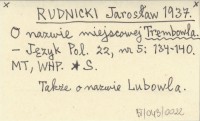 RUDNICKI Jarosław 1937.
O nazwie miejscowej Trembowla.
— Język Pol. 22, nr 5: 134-140.
MT, WHP. * S.
Także o nazwie Lubowla.